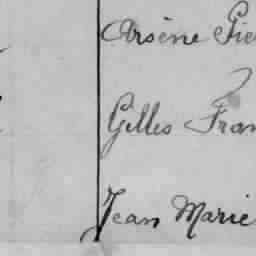 Arsène Pie
Gilles Fran
Jean Marie